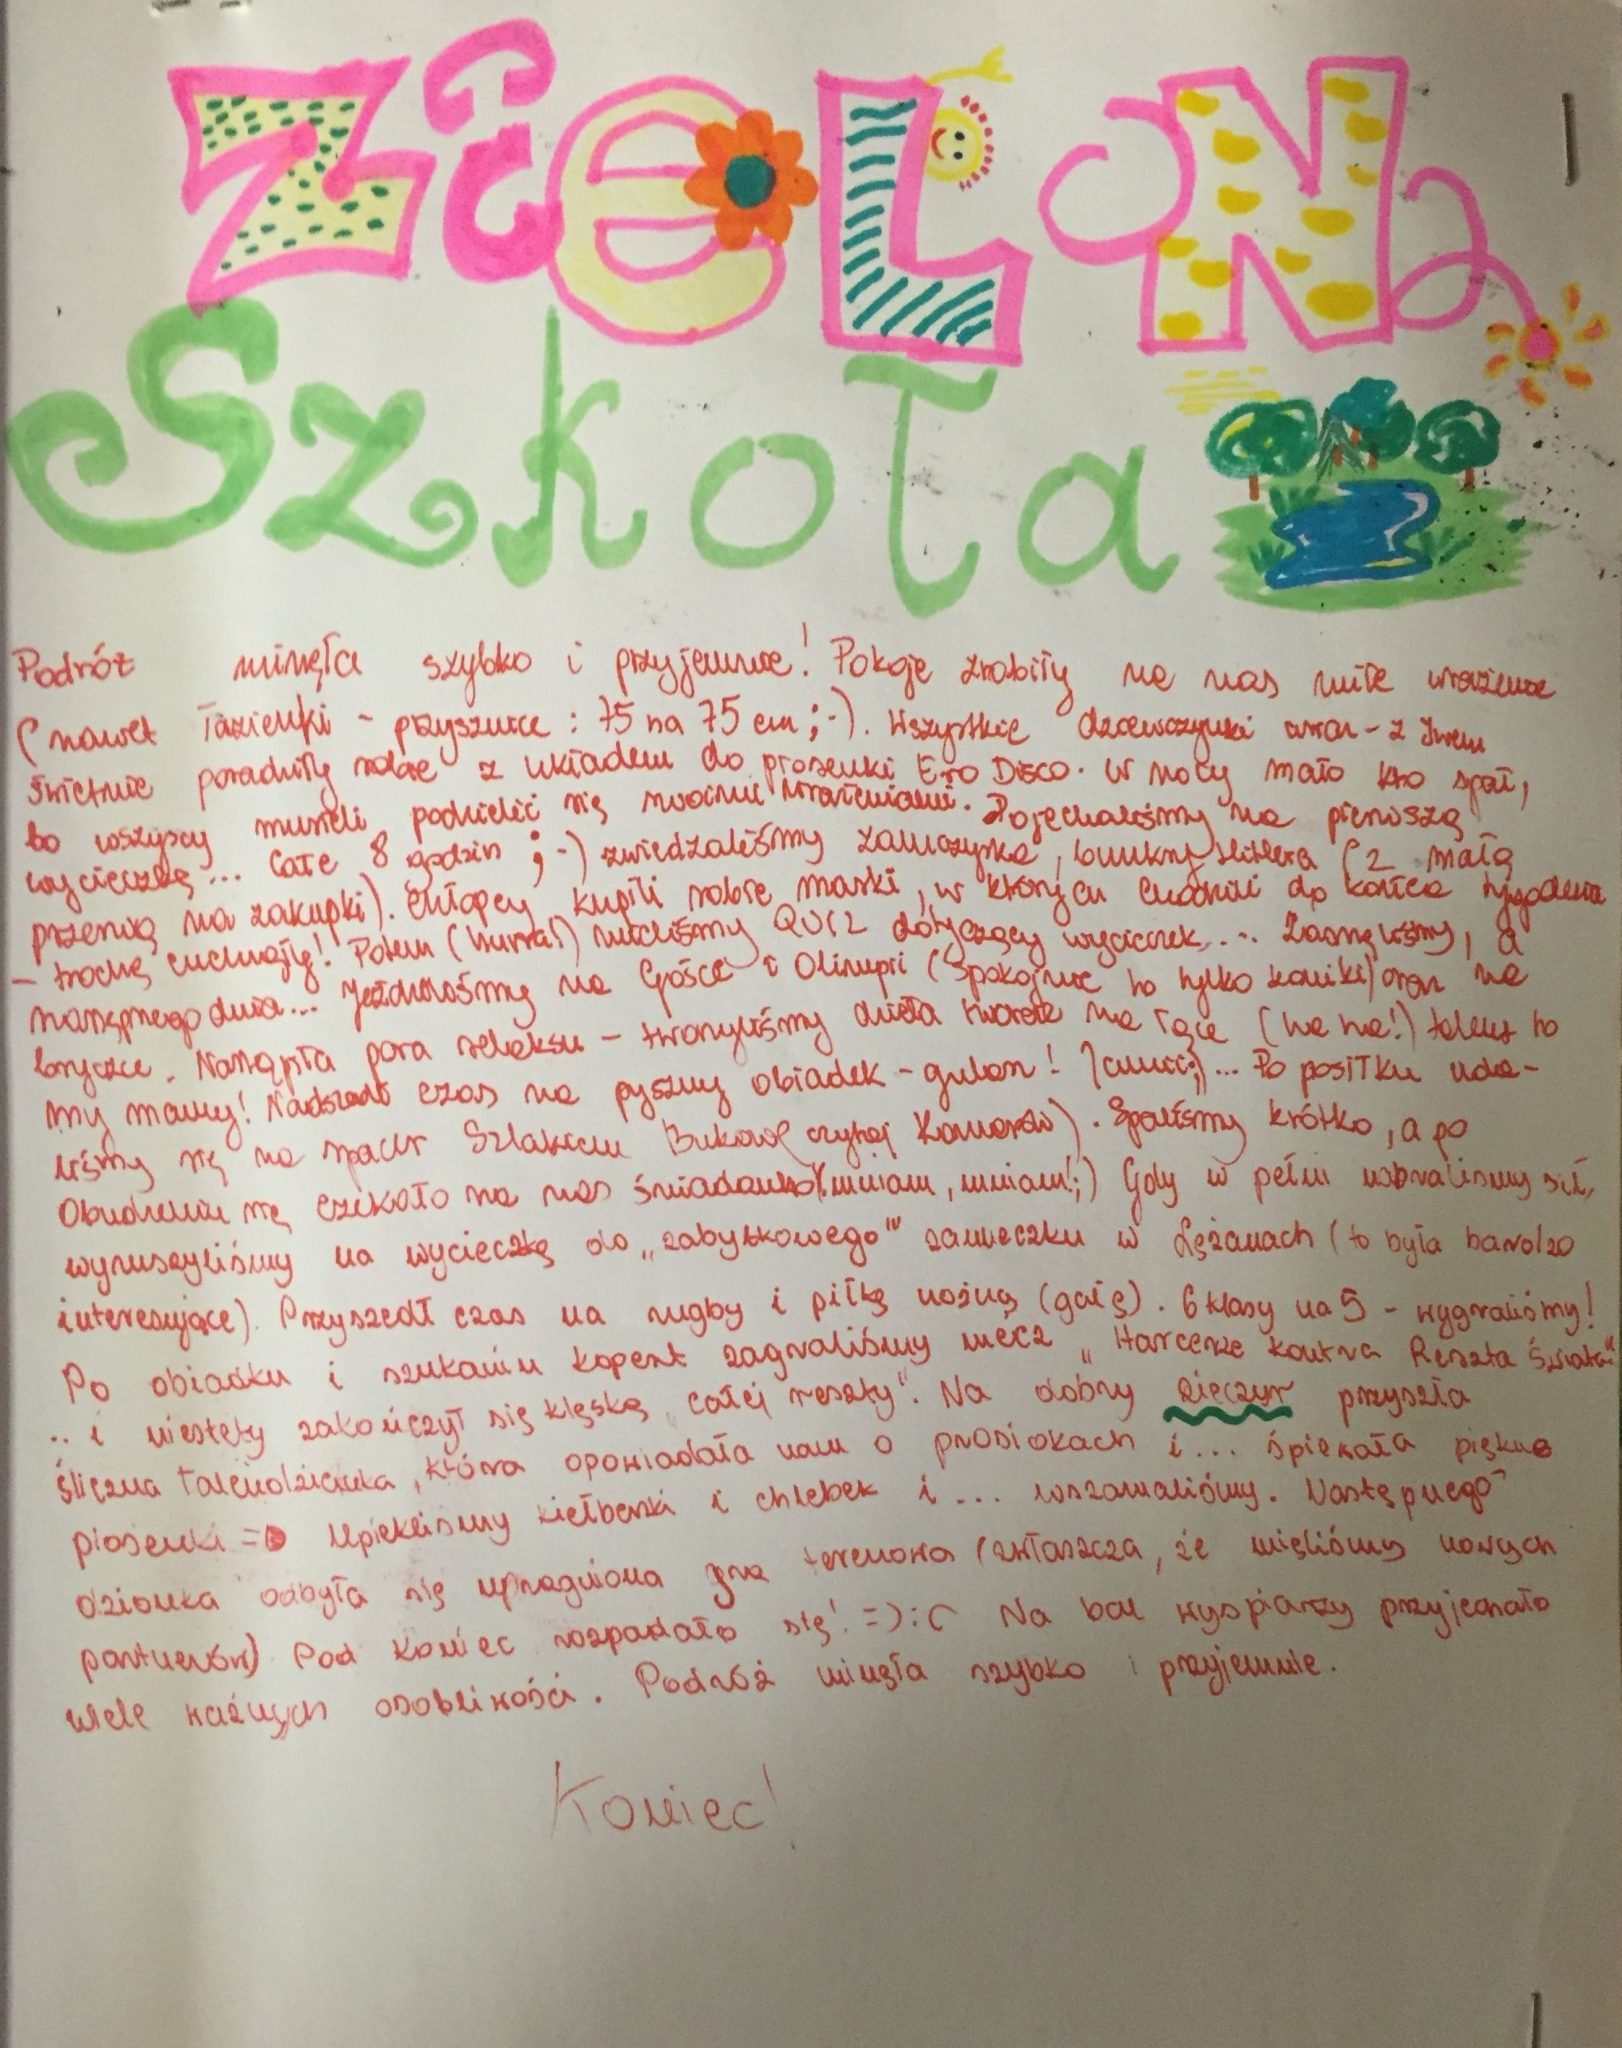 ZieLONa
Szkoła
Podróż minęła szybko i przyjemnie! Pokoje zrobiły na nas miłe wrażenie
(nawet łazienki - prysznice : 75 na 75 cm ;-). Wszystkie dziewczynki wraz - z
świetnie poradziły sobie z układem do piosenki E-ro Disco. W nocy mało kto spał,
bo wszyscy musieli podzielić się swoimi wrażeniami. Pojechaliśmy na pierwszą
wycieczkę... Całe 8 godzin ;-) zwiedzaliśmy zamczyska, bunkry Hitlera (z małą
przerwą na zakupki). Chłopcy kupili sobie maski, w których chodzili do końca tygodnia
- trochę cuchnęły! Potem (hurra!) mieliśmy QUIZ dotyczący wycieczek... Zasnęliśmy, a
następnego dnia... Jeździliśmy na Gośce i Olimpii (spokojnie to tylko koniki) oraz na
bryczce. Nastąpiła pora relaksu - tworzyliśmy dzieła na łące (ha ha!) talent to
my mamy! Nadszedł czas na pyszny obiadek - gulasz! ... Po posiłku uda-
liśmy się na spacer Szlakiem Bukowę czytaj Komarów). Spaliśmy krótko, a po
Obudzeniu się czekało na nas śniadanko (mniam, mniam!;) Gdy w pełni nabraliśmy sił,
wyruszyliśmy na wycieczkę do „zabytkowego" zameczku w Łężanach (to była bardzo
interesujące). Przyszedł czas na rugby i piłkę nożną (gałę). 6 klasy na 5 - wygraliśmy!
Po obiadku i szukaniu kopert zagraliśmy mecz „Harcerze kontra Reszta Świata"
.. i niestety zakończył się klęską „całej reszty". Na dobry wieczór przyszła
śliczna , która opowiadała nam o prosiakach i... śpiewała piękne
piosenki =D Upiekliśmy kiełbaski i chlebek i ... wszamaliśmy. Następnego
dzionka odbyła się upragniona gra terenowa (zwłaszcza, że mieliśmy nowych
partnerów) Pod koniec rozpadało się! =) :( Na bal wyspiarzy przyjechało
wiele ważnych osobliwości. Podróż minęła szybko i przyjemnie.
Koniec!